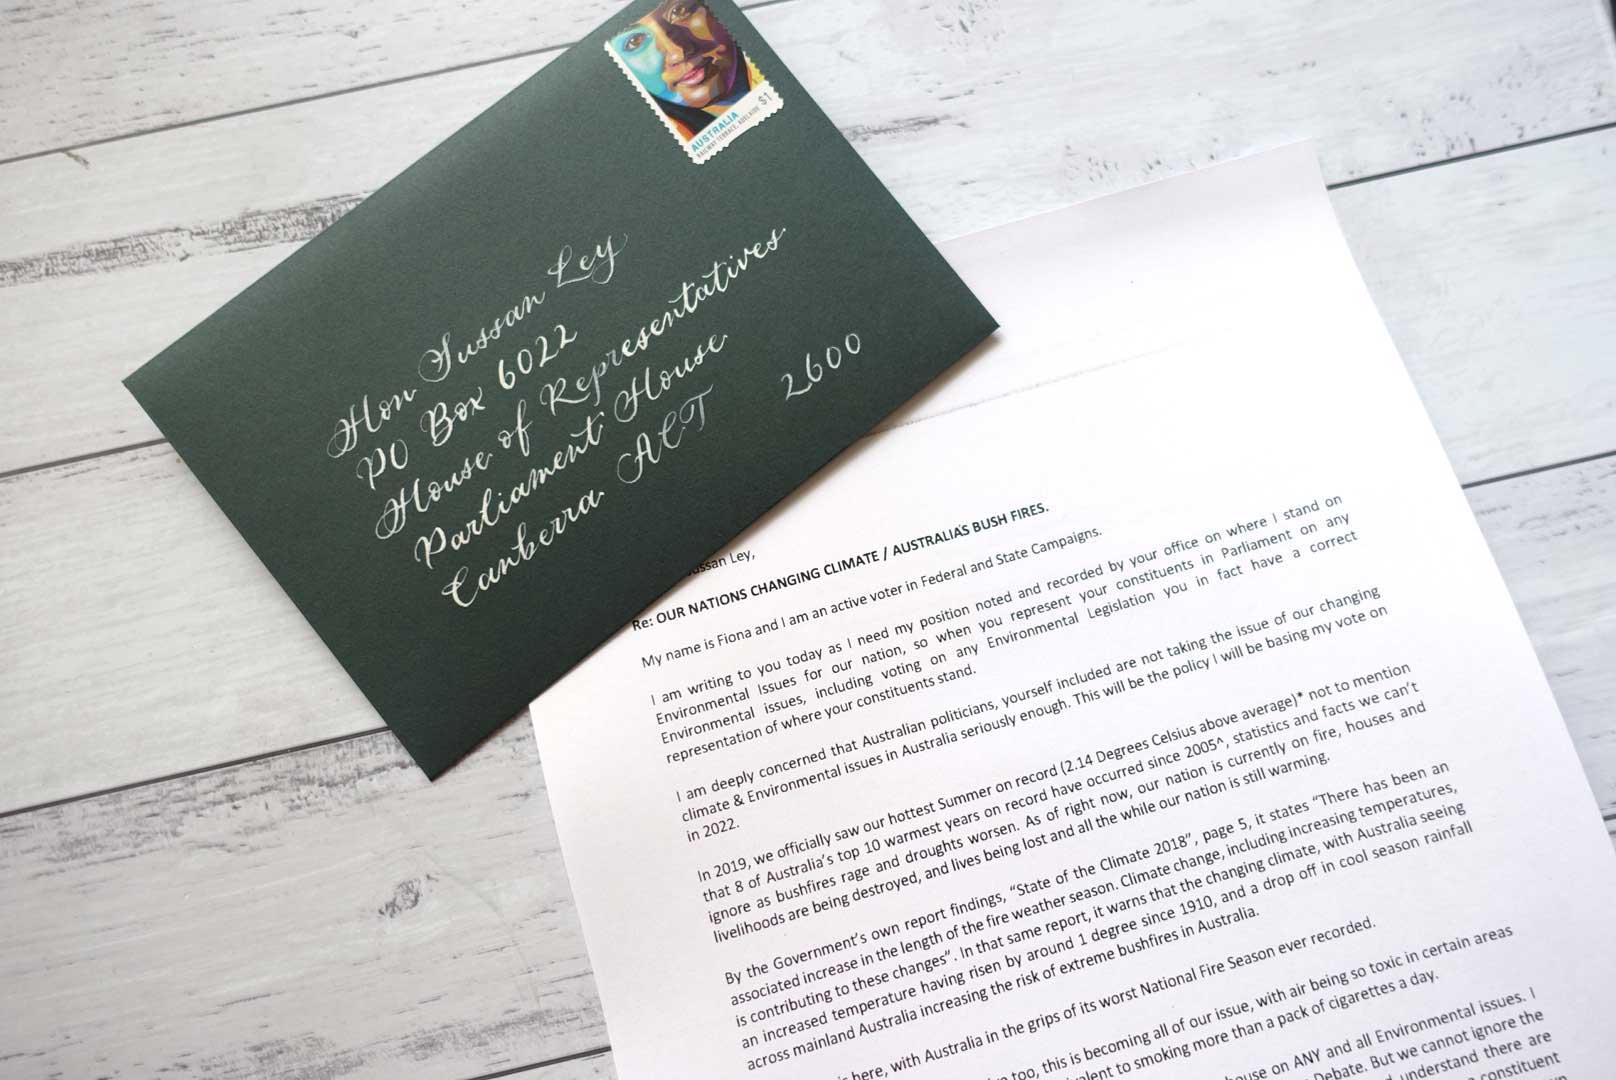 AUSTRALIA $1
RAILWAY TERRACE, ADELAIDE
Hon Sussan Ley
PO Box 6022
House of Representatives
Parliament House
Canberra ACT 2600
Ley,
Re: OUR NATIONS CHANGING CLIMATE / AUSTRALIA'S BUSH FIRES.
My name is Fiona and I am an active voter in Federal and State Campaigns.
I am writing to you today as I need my position noted and recorded by your office on where I stand on
Environmental Issues for our nation, so when you represent your constituents in Parliament on any
Environmental issues, including voting on any Environmental Legislation you in fact have a correct
representation of where your constituents stand.
I am deeply concerned that Australian politicians, yourself included are not taking the issue of our changing
climate & Environmental issues in Australia seriously enough. This will be the policy I will be basing my vote on
in 2022.
In 2019, we officially saw our hottest Summer on record (2.14 Degrees Celsius above average)* not to mention
that 8 of Australia's top 10 warmest years on record have occurred since 2005^, statistics and facts we can't
ignore as bushfires rage and droughts worsen. As of right now, our nation is currently on fire, houses and
livelihoods are being destroyed, and lives being lost and all the while our nation is still warming.
By the Government's own report findings, "State of the Climate 2018", page 5, it states "There has been an
associated increase in the length of the fire weather season. Climate change, including increasing temperatures,
is contributing to these changes". In that same report, it warns that the changing climate, with Australia seeing
an increased temperature having risen by around 1 degree since 1910, and a drop off in cool season rainfall
across mainland Australia increasing the risk of extreme bushfires in Australia.
here, with Australia in the grips of its worst National Fire Season ever recorded.
too, this is becoming all of our issue, with air being so toxic in certain areas
to smoking more than a pack of cigarettes a day.
on ANY and all Environmental issues. I
Debate. But we cannot ignore the
understand there are
constituent